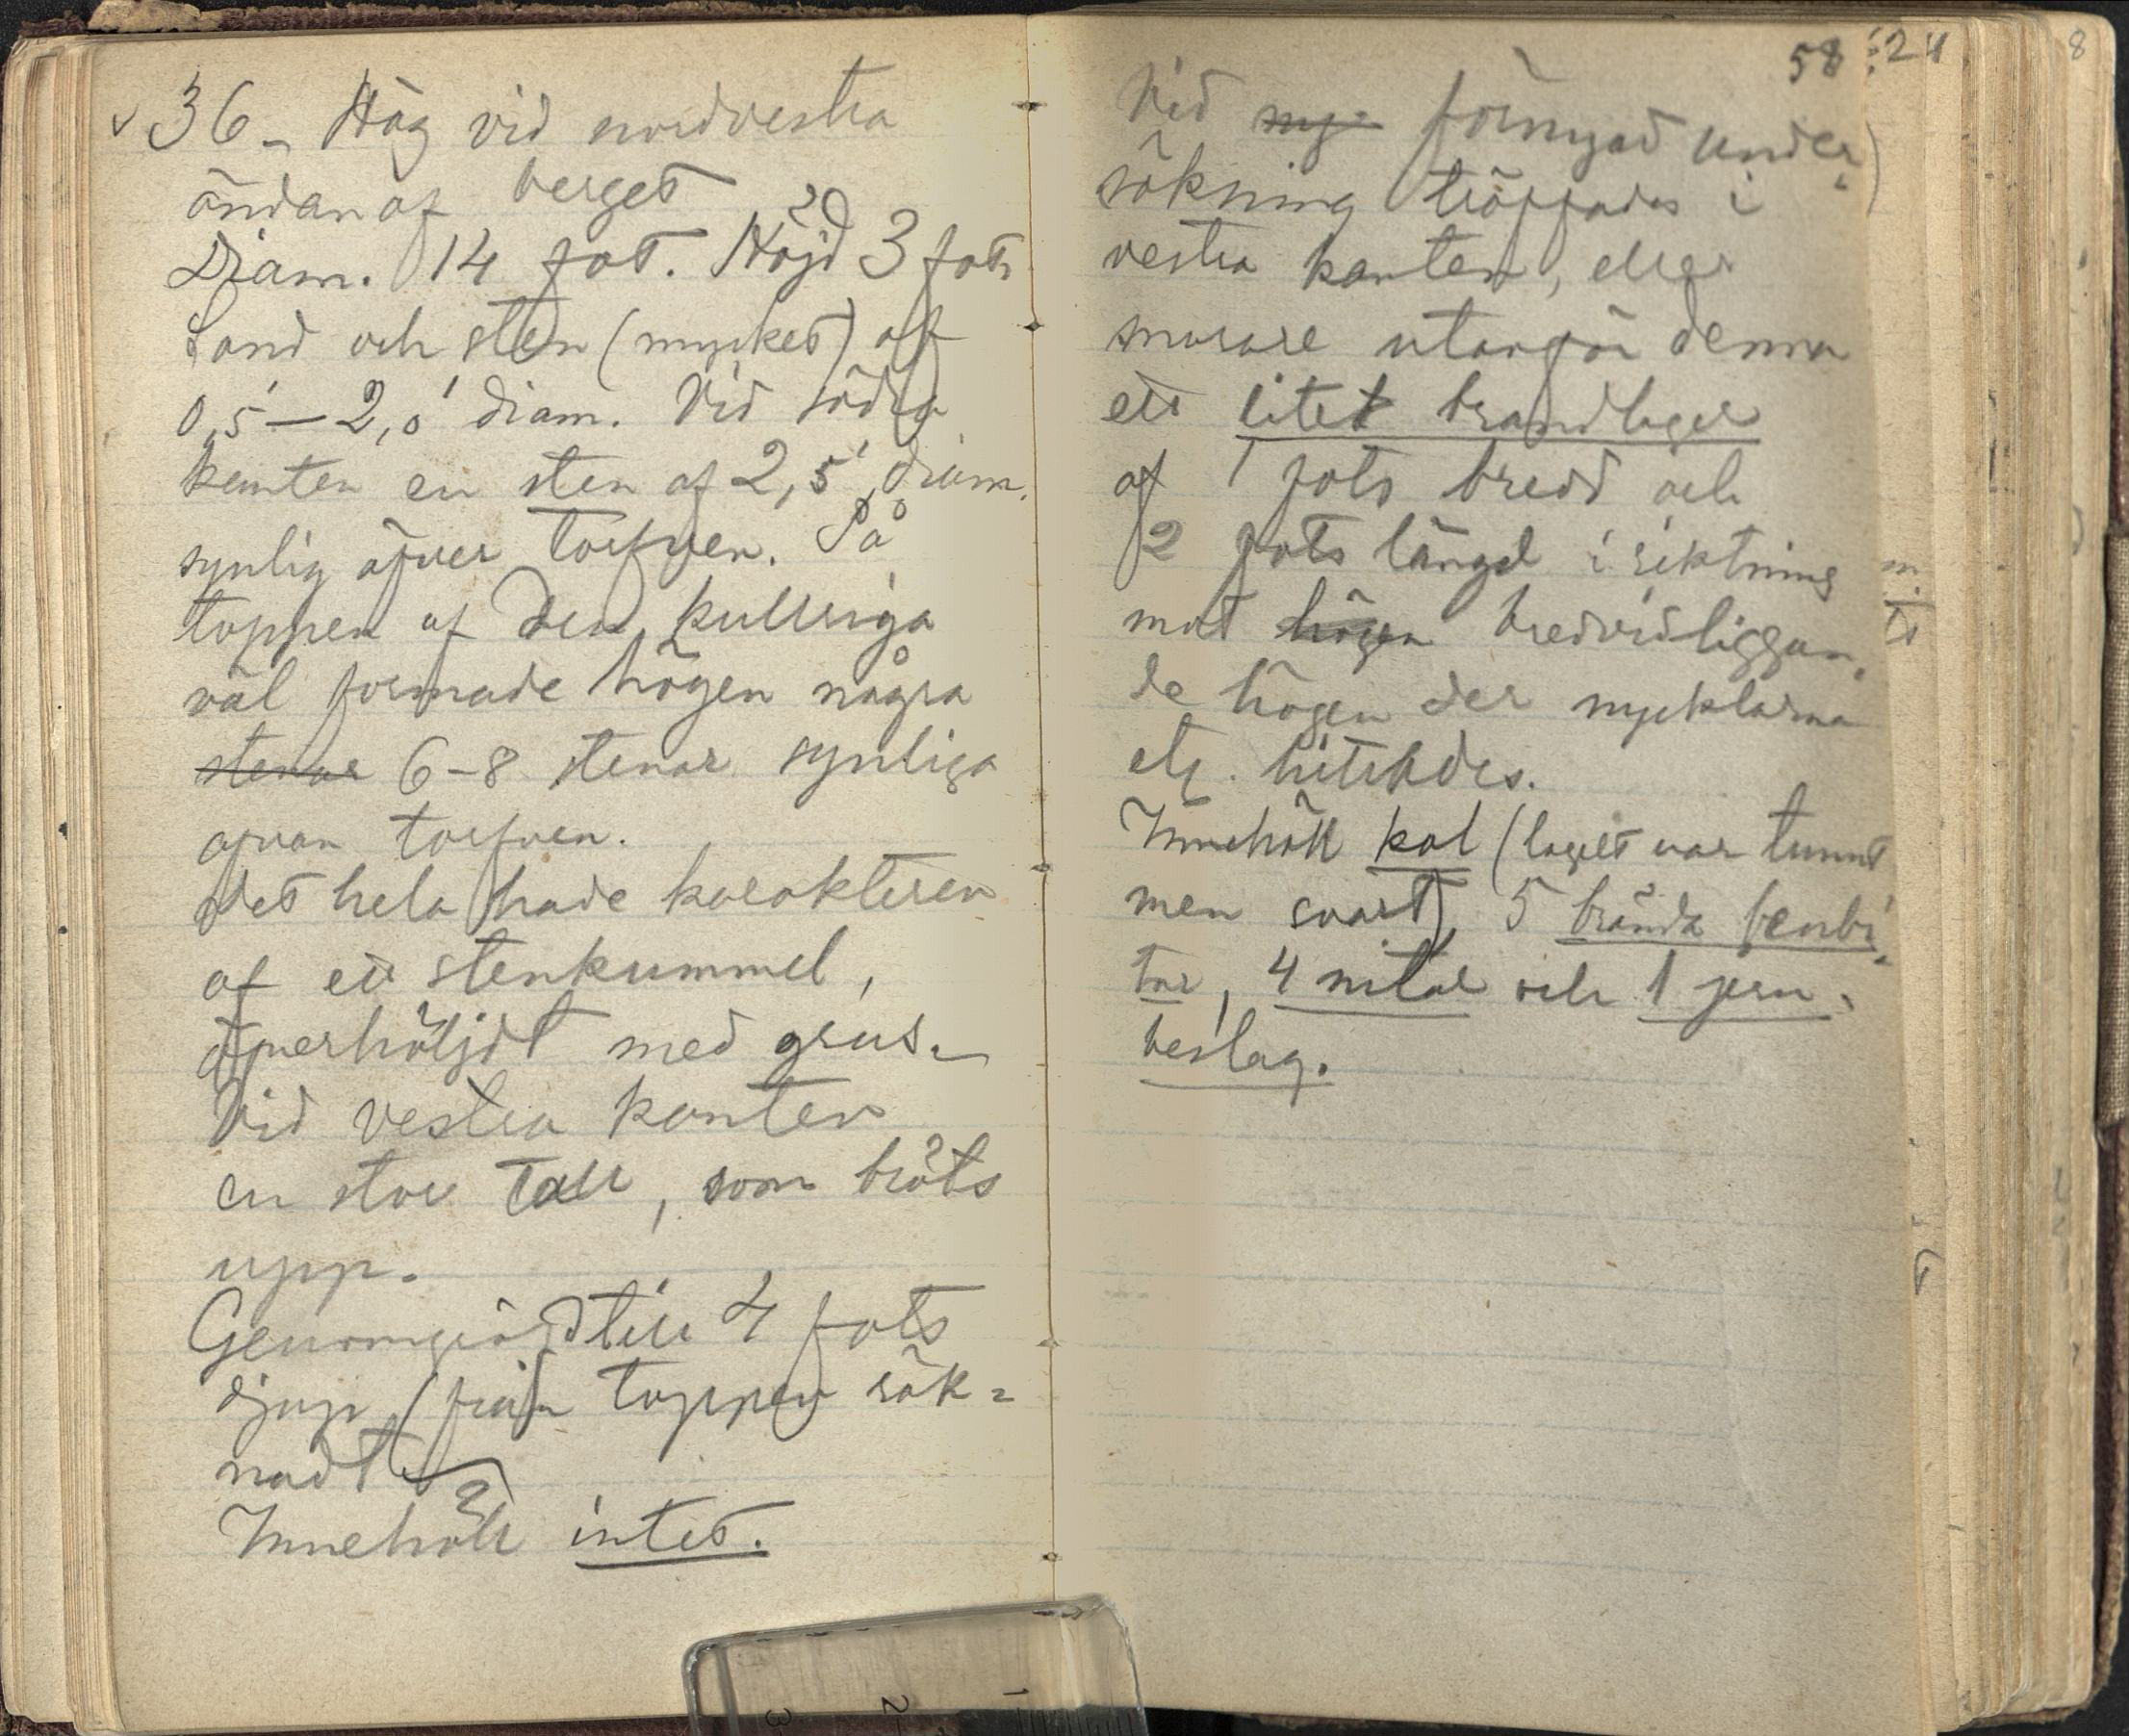 36. Hög vid nordvestra
ändan af berget
Diam. 14 fot. Höjd 3 fot.
Sand och sten (mycket) af
0,5'–2,0' diam. Vid södra
kanten en sten af 2,5' diam.
synlig öfver torfven. På
toppen af den kulleriga
väl formade högen några
stenar 6–8 stenar synliga
ofvan torfven.
Det hela hade karakteren
af ett stenkummel,
öfverhöljdt med grus.
Vid vestra kanten
en stor tall, som bröts
upp.
Genomgräfd till 4 fots
djup (från toppen räk-
nadt)
Innehöll intet.
58
Vid ny förnyad under-
sökning träffades i
vestra kanten, eller
snarare utanför denna
ett litet brandlager
af 1 fots bredd och
2 fots längd i riktning
mot högen bredvidliggan-
de högen der nycklarna
etc. hittades.
Innehöll kol (lagret var tunnt
men svart), 5 brända benbi-
tar, 4 nitar och 1 jern-
beslag.
24
8